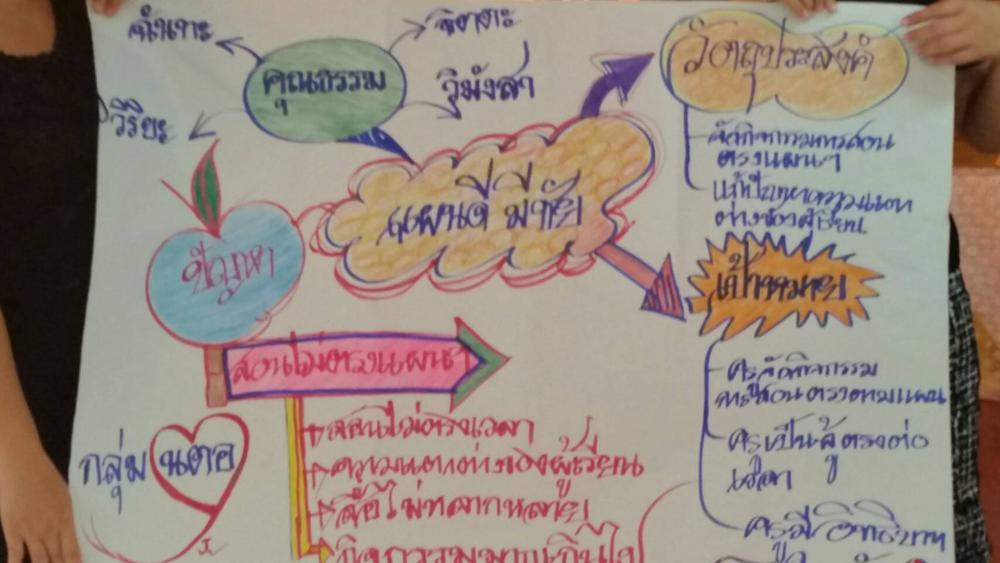 ฉันทะ
จิตตะ
คุณธรรม
วิริยะ
วิมังสา
วัตถุประสงค์
จัดกิจกรรมการสอน
ตรงแผนฯ
แก้ปัญหาความแตก
ต่างของผู้เรียน
แผนดี มีชัย
ปัญหา
เป้าหมาย
สอนไม่ตรงแผนฯ
สอนไม่ตรงเวลา
ความแตกต่างของผู้เรียน
สื่อไม่หลากหลาย
กิจกรรมมากเกินไป
ครูจัดกิจกรรม
การสอนตรงตามแผน
ครูเป็นผู้ตรงต่อ
เวลา
ครูมีอิทธิบาท
กลุ่ม นตอ